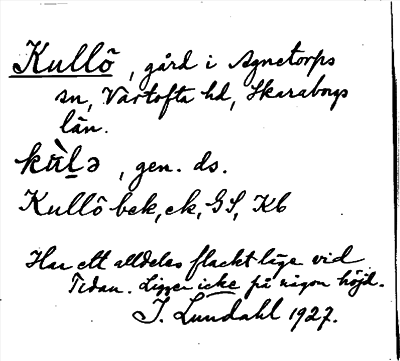 Kullö, gård i Agnetorps
sn, Vartofta hd, Skaraborgs
län.
kùlə, gen. ds.
Kullö bek, ek, GS, Kb
Har ett alldeles flackt läge vid
Tidan. Ligger icke på någon höjd.
I. Lundahl 1927.